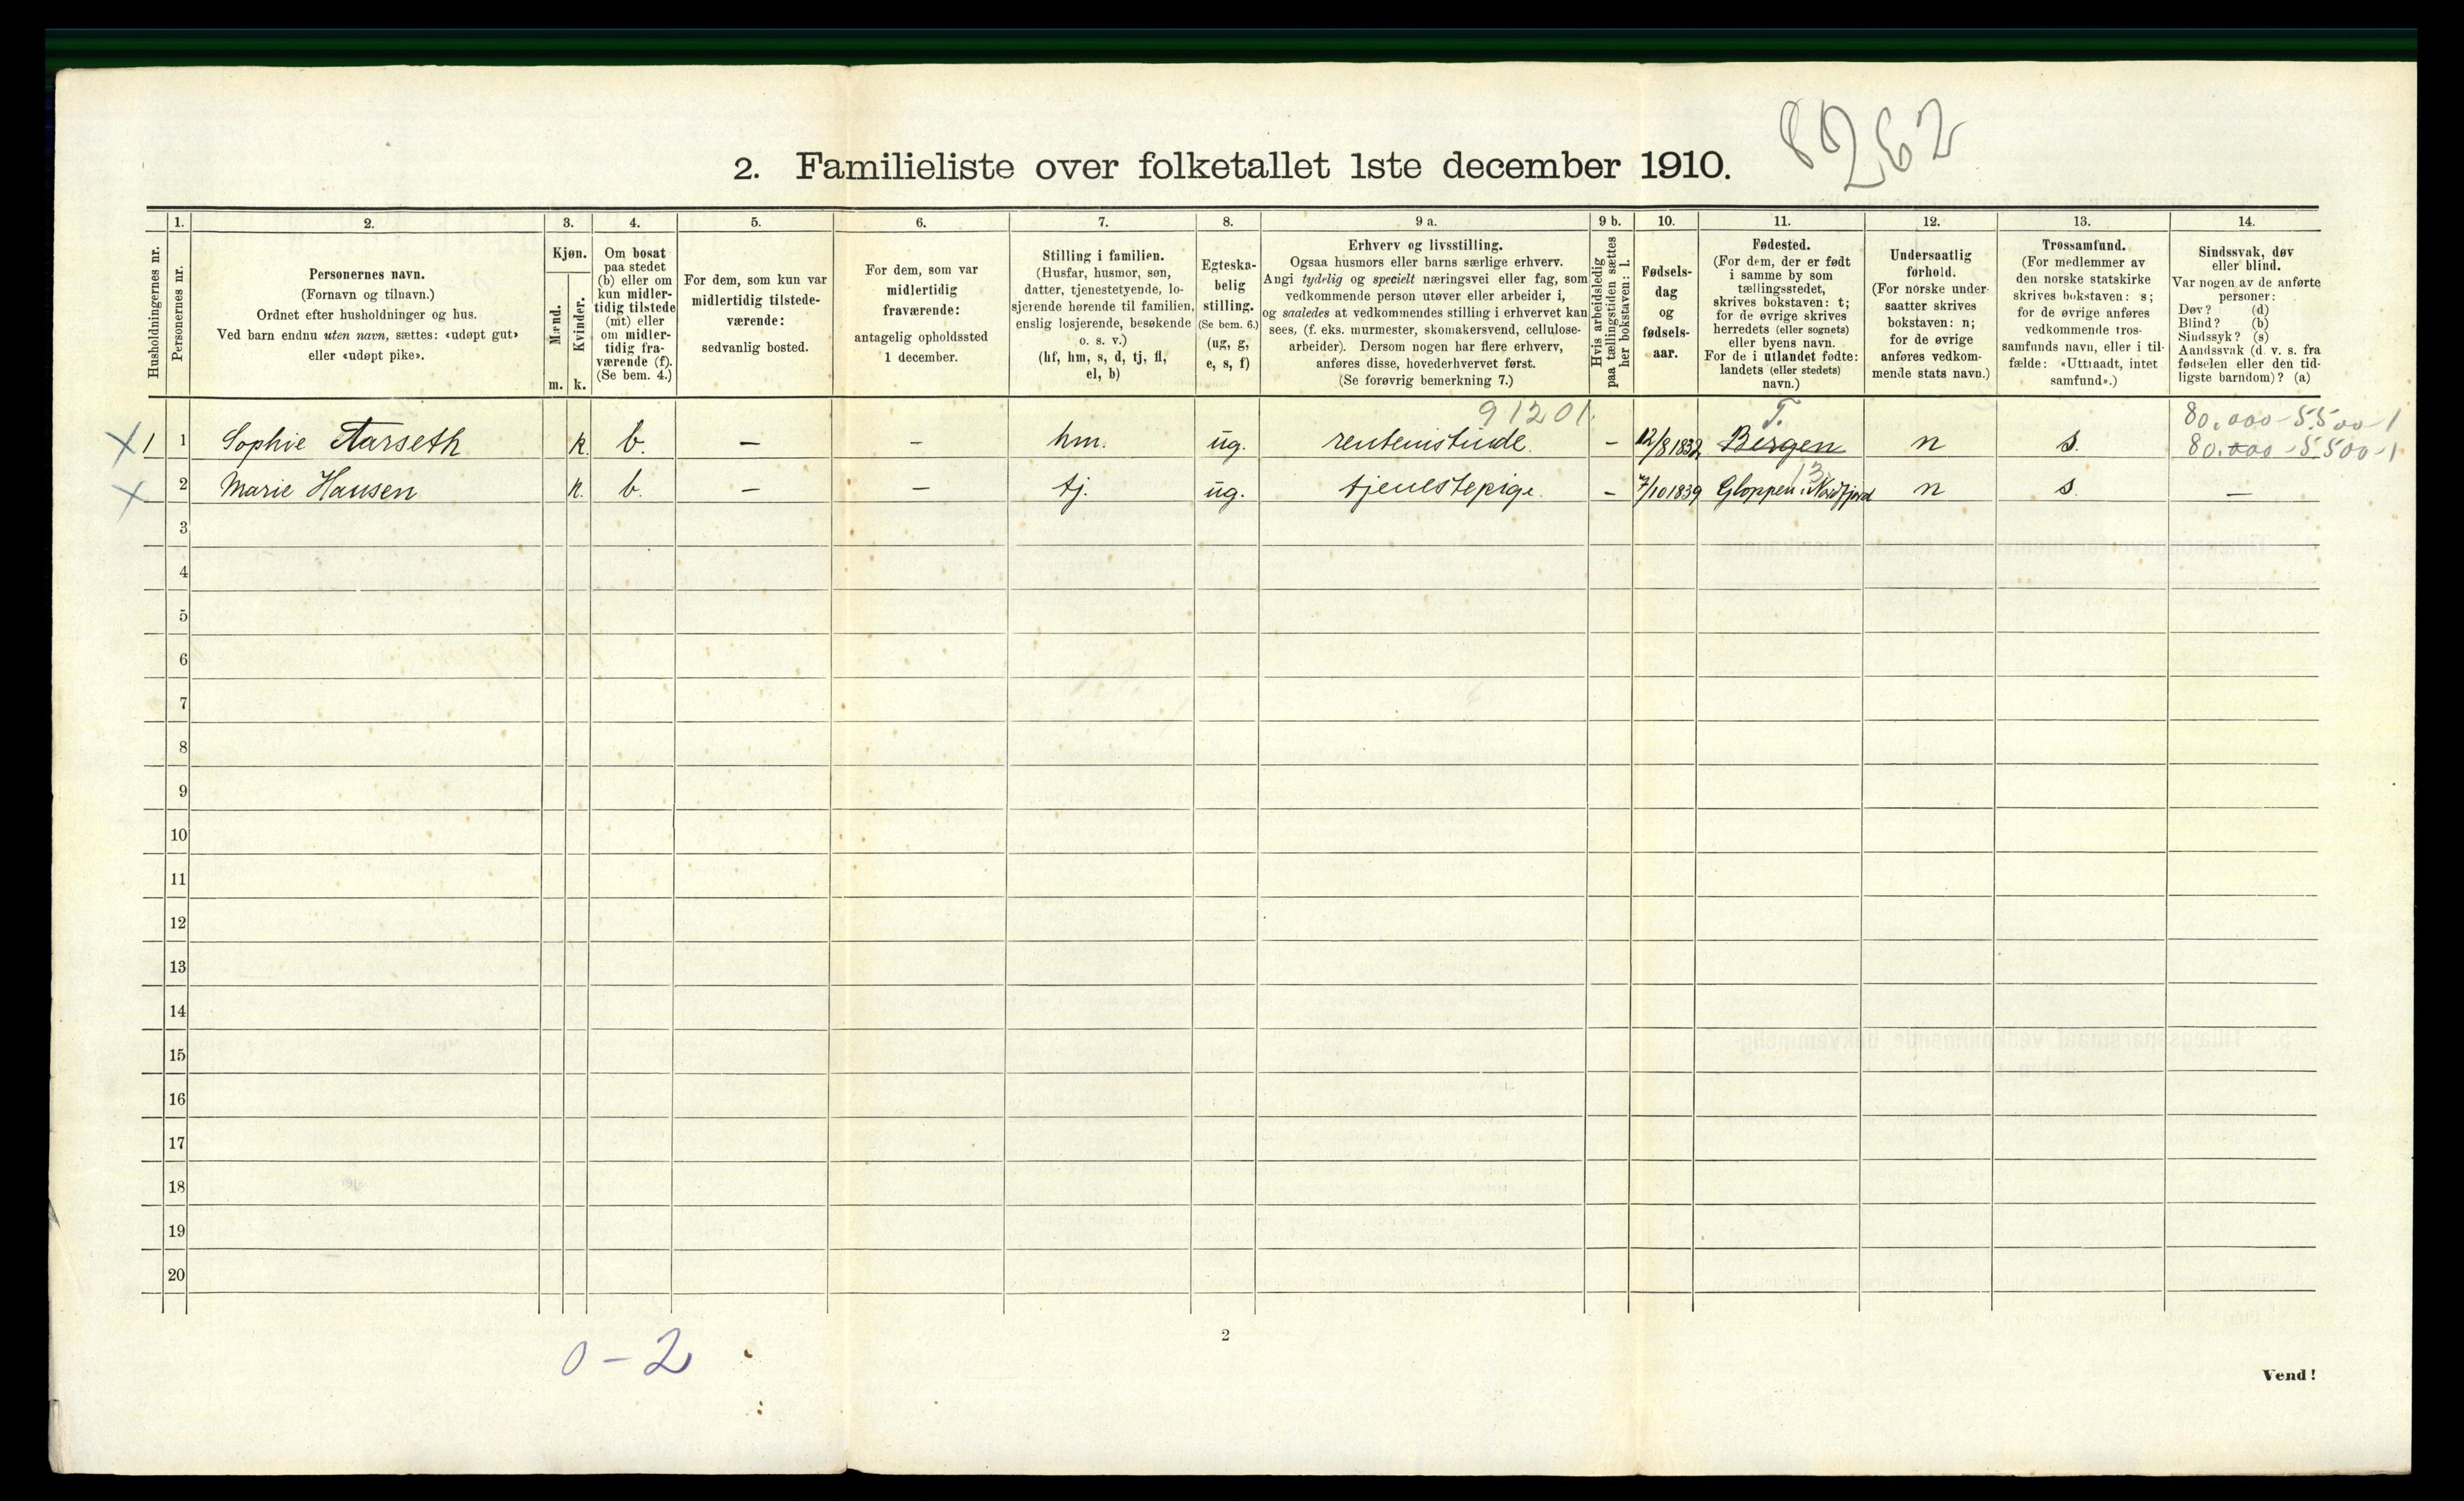 8262
2. Familieliste over folketallet 1ste december 1910.
Husholdningernes nr.
1.
Personernes nr.
2.
Personernes navn.
(Fornavn og tilnavn.)
Ordnet efter husholdninger og hus.
Ved barn endnu uten navn, sættes: «udøpt gut»
eller «udøpt pike».
3.
Kjøn.
Mænd.
Kvinder.
m.
k.
4.
Om bosat
paa stedet
(b) eller om
kun midler-
tidig tilstede
(mt) eller
om midler-
tidig fra-
værende (f).
(Se bem. 4.)
5.
For dem, som kun var
midlertidig tilstede-
værende:
sedvanlig bosted.
6.
For dem, som var
midlertidig
fraværende:
antagelig opholdssted
1 december.
7.
Stilling i familien.
(Husfar, husmor, søn,
datter, tjenestetyende, lo-
sjerende hørende til familien,
enslig losjerende, besøkende
o. s. v.)
(hf, hm, s, d, tj, fl,
el, b)
8.
Egteska-
belig
stilling.
(Se bem. 6.)
(ug, g,
e, s, f)
9 a.
Erhverv og livsstilling.
Ogsaa husmors eller barns særlige erhverv.
Angi tydelig og specielt næringsvei eller fag, som
vedkommende person utøver eller arbeider i,
og saaledes at vedkommendes stilling i erhvervet kan
sees, (f. eks. murmester, skomakersvend, cellulose-
arbeider). Dersom nogen har flere erhverv,
anføres disse, hovederhvervet først.
(Se forøvrig bemerkning 7.)
9 b.
Hvis arbeidsledig
paa tællingstiden sættes
her bokstaven: l.
10.
Fødsels-
dag
og
fødsels-
aar.
11.
Fødested.
(For dem, der er født
i samme by som
tællingsstedet,
skrives bokstaven: t;
for de øvrige skrives
herredets (eller sognets)
eller byens navn.
For de i utlandet fødte:
landets (eller stedets)
navn.)
12.
Undersaatlig
forhold.
(For norske under-
saatter skrives
bokstaven: n;
for de øvrige
anføres vedkom-
mende stats navn.)
13.
Trossamfund.
(For medlemmer av
den norske statskirke
skrives bokstaven: s;
for de øvrige anføres
vedkommende tros-
samfunds navn, eller i til-
fælde: «Uttraadt, intet
samfund».)
14.
Sindssvak, døv
eller blind.
Var nogen av de anførte
personer:
Døv? (d)
Blind? (b)
Sindssyk? (s)
Aandssvak (d. v. s. fra
fødselen eller den tid-
ligste barndom)? (a)
91201. T. 80.000-5500-1
X 1 1 Sophie Aarseth k. b. – – hm. ug. renteinstude. – 12/8 1832 Bergen n s. 80.000-5500-1
13
X 2 Marie Hansen k. b. – – tj. ug. tjenestepige. – 7/10 1839 Gloppen i Nordfjord n s. –
3
4
5
6
7
8
9
10
11
12
13
14
15
16
17
18
19
20
2
0-2
Vend!